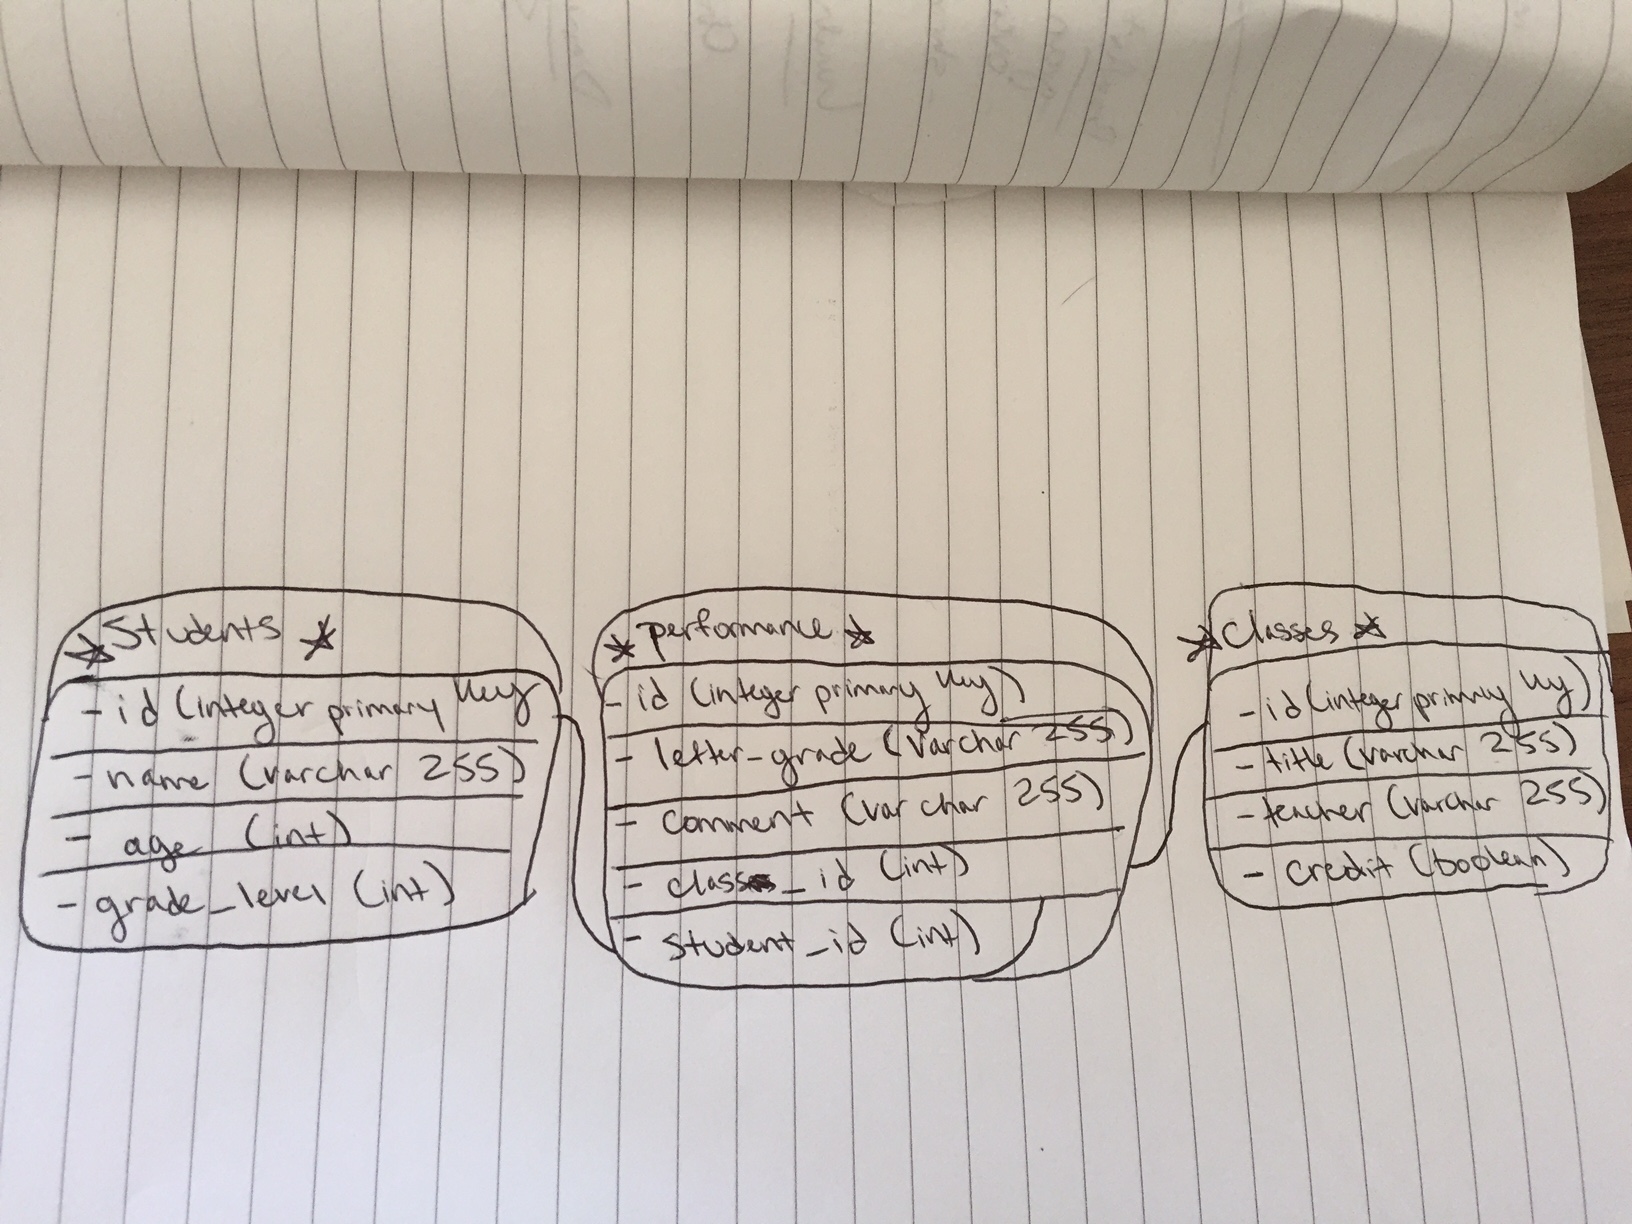 Students
- id (integer primary key
- name (varchar 255)
- age (int)
- grade_level (int)
performance
- id (integer primary key)
- letter-grade (varchar 255)
- comment (varchar 255)
- class_id (int)
- student_id (int)
Classes
- id (integer primary key)
- title (varchar 255)
- teacher (varchar 255)
- credit (boolean)